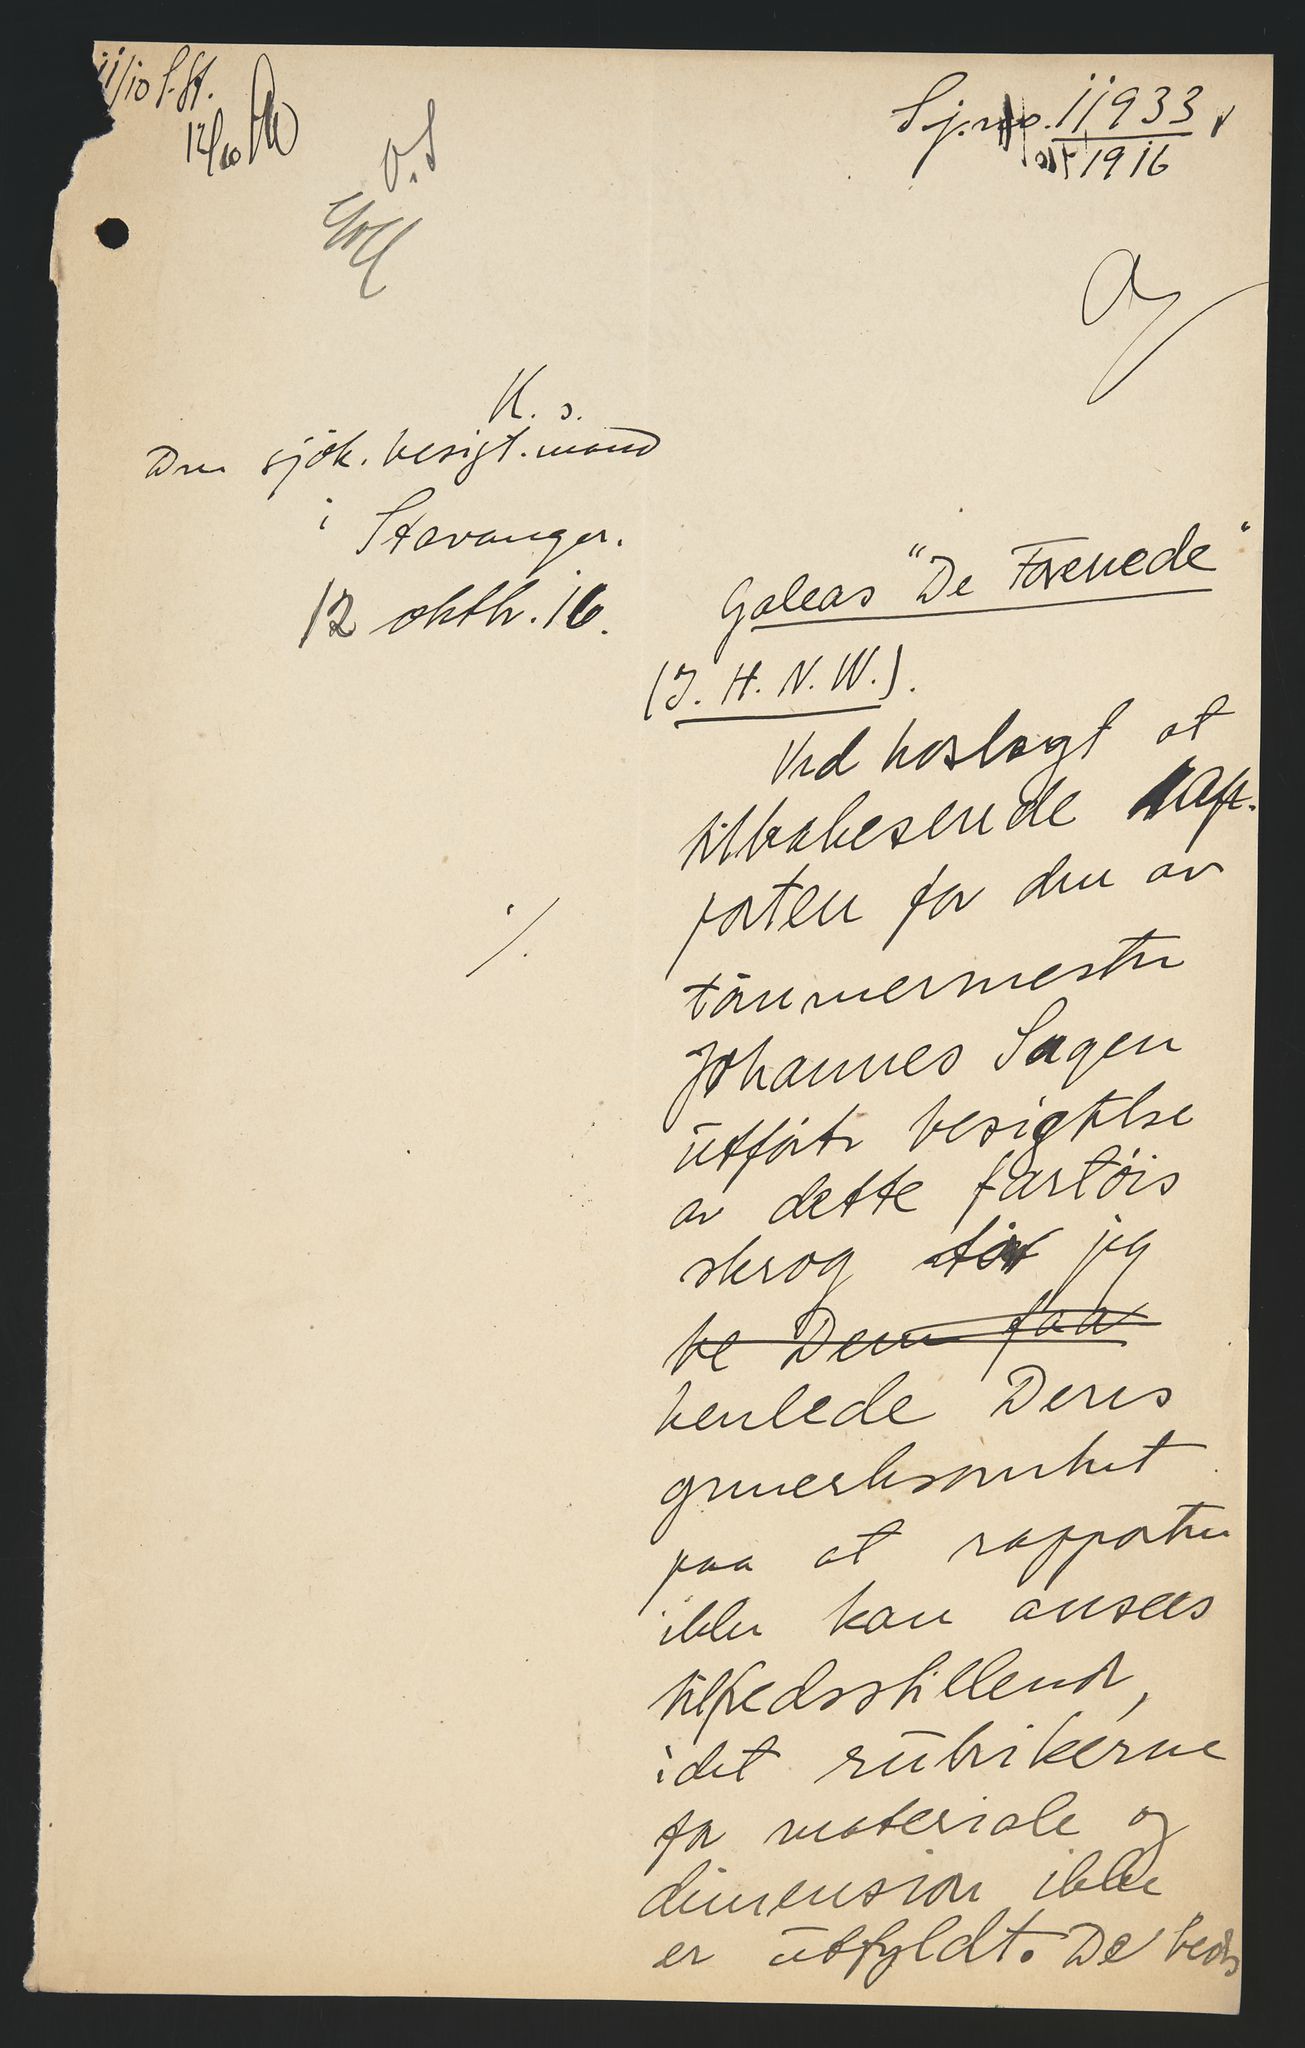 11/10 S.St.
12/10
O.S
Sj. no. 11933
1916
K. s.
Den sjök. besigt. mand
i Stavanger.
12 oktbr. 16.
Galeas "De Forenede"
(J. H. N. W.).
Ved hoslagt at
tilbakesende rap-
porten for den av
tömmermester
Johannes Sagen
utförte besigtelse
av dette fartöis
skrog tör jeg
be Dem faa
henlede Deres
opmerksomhet
paa at rapporten
ikke kan ansees
tilfredsstillende,
idet rubrikerne
for materiale og
dimension ikke
er utfyldt. De bedes